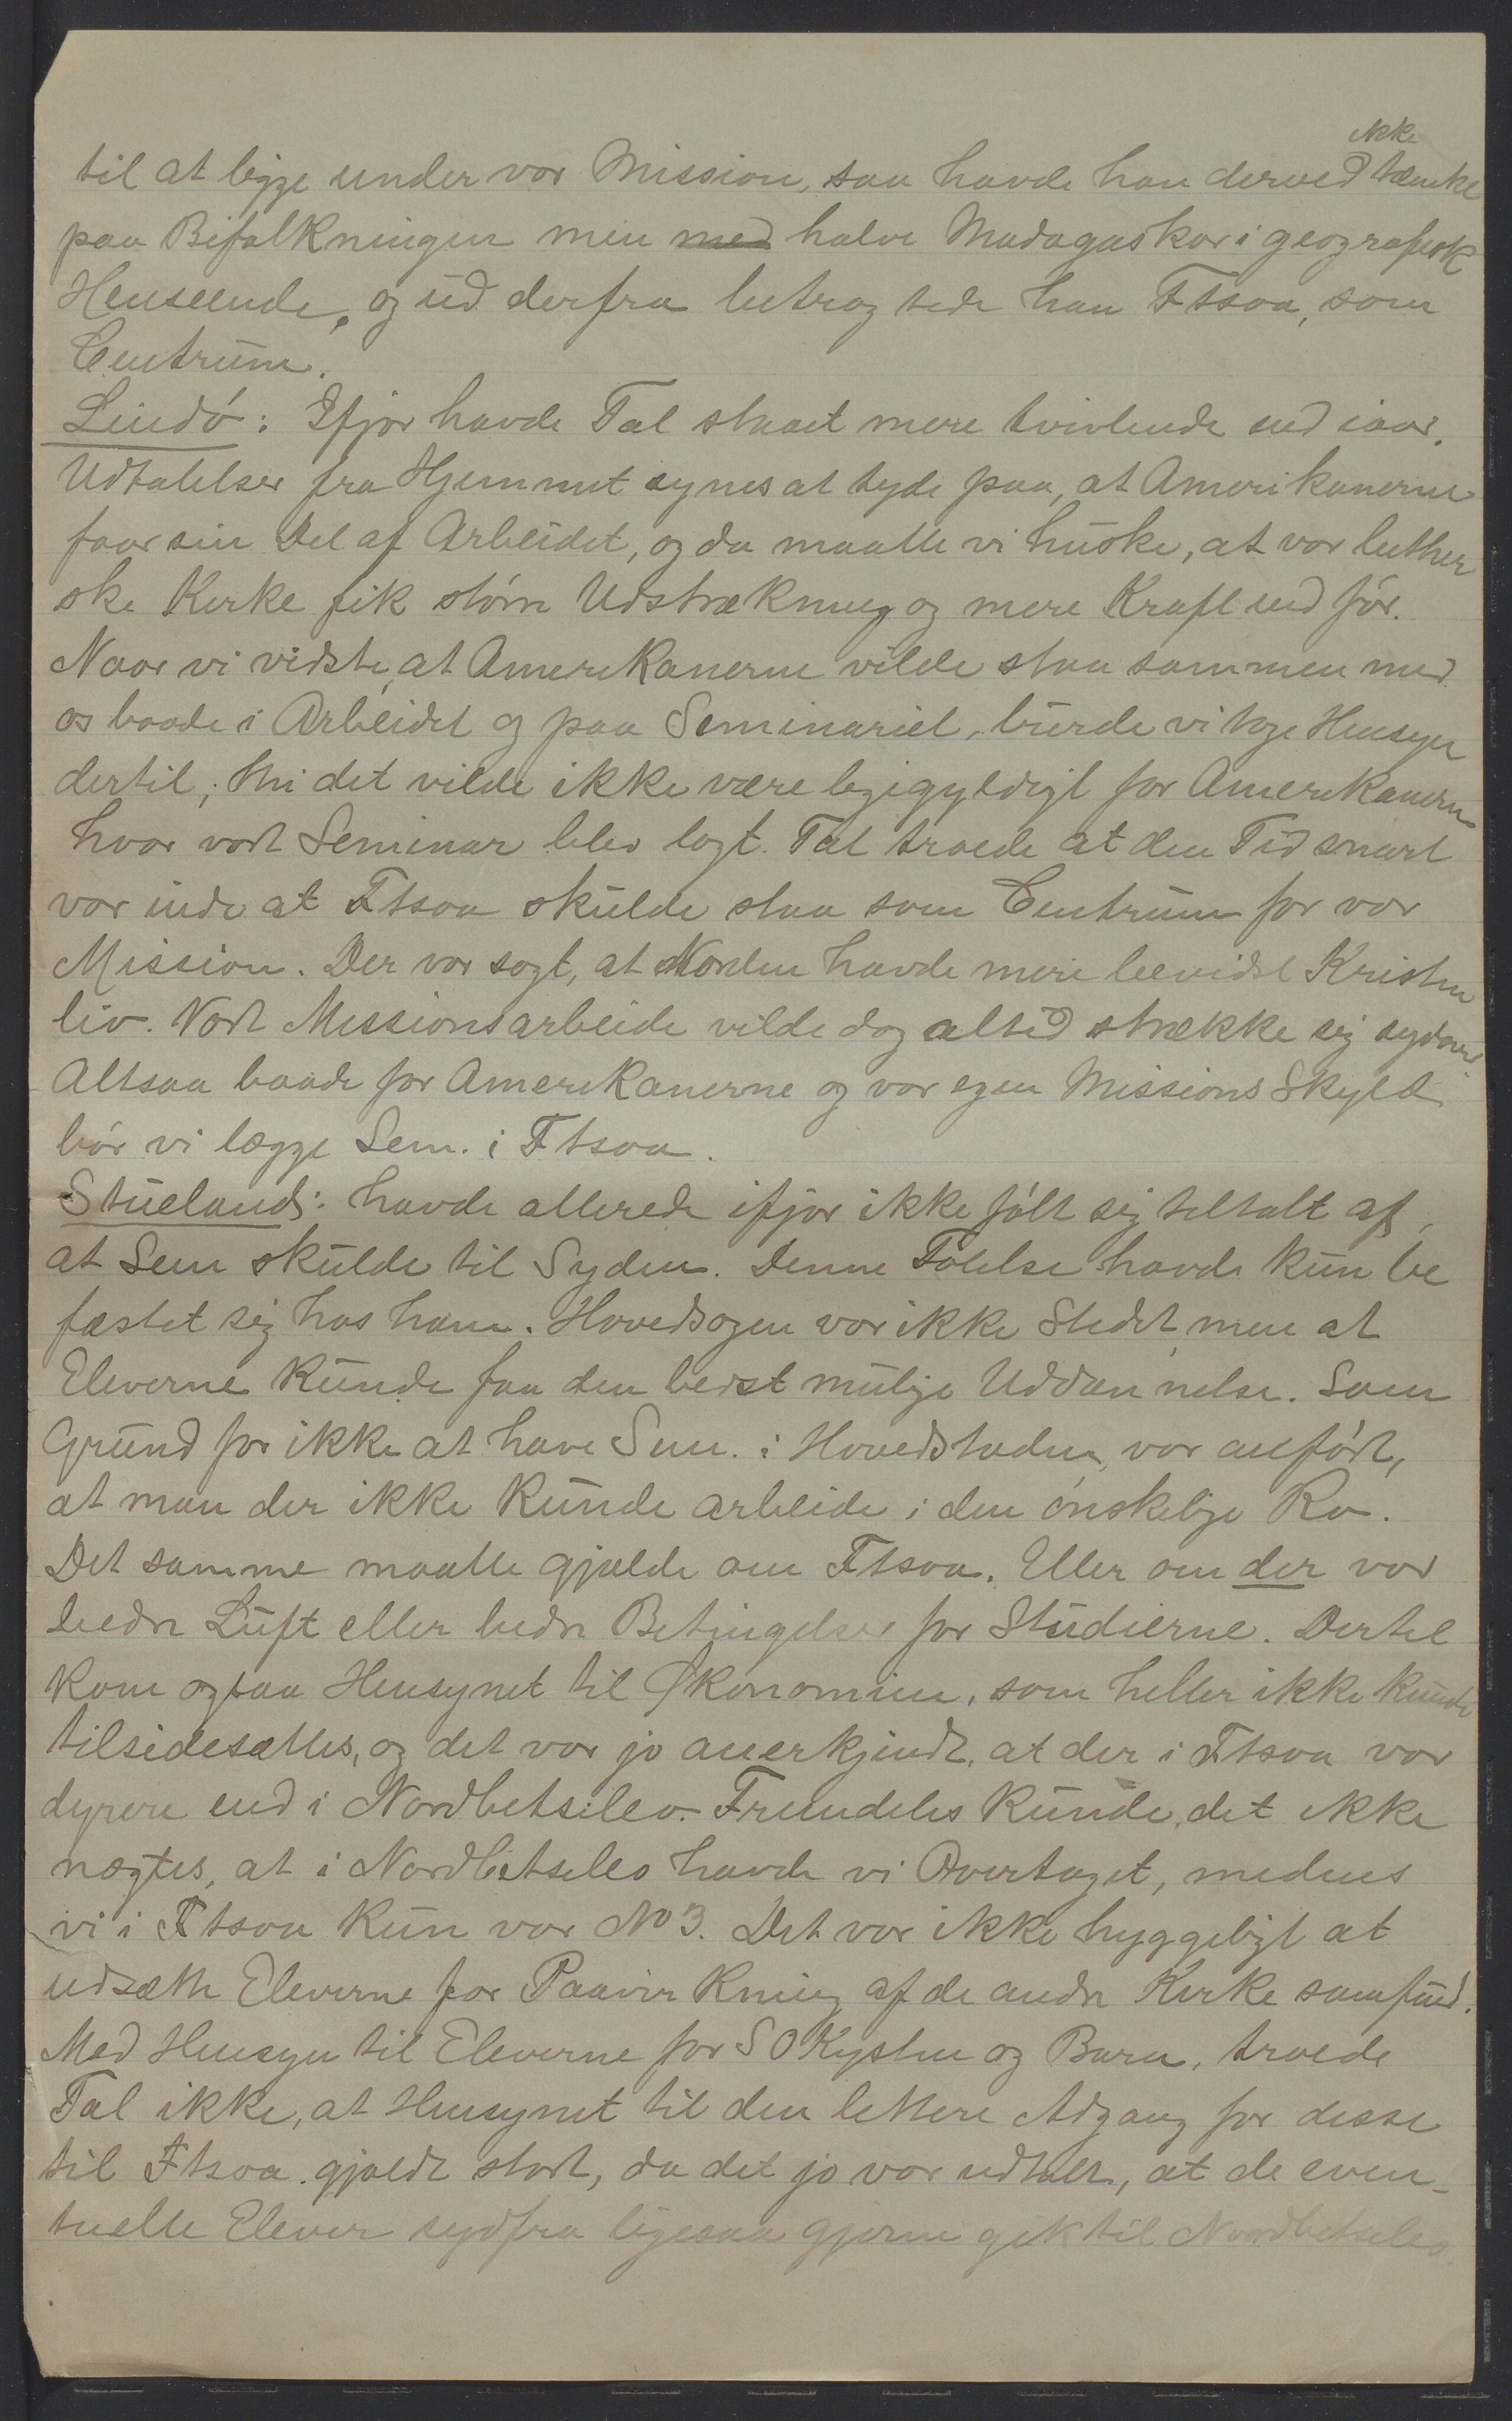 ikke
til at ligge under vor Mission, saa havde han derved tænkt
paa Befolkningen men med halve Madagaskar i geografisk
Henseende, og ud derfra betragtede han Ftsoa, som
Centrum.
Lindö: Ifjor havde Tal staaet mere tvivlende end iaar.
Udtalelser fra Hjemmet synes at tyde paa, at Amerikanerne
faar sin Del af Arbeidet, og da maatte vi huske, at vor luther
ske Kirke fik større Udstrækning og mere Kraft end før.
Naar vi vidste, at Amerikanerne vilde staa sammen med
os baade i Arbeidet og paa Seminariet, burde vi tage Hensyn
dertil; thi det vilde ikke være ligegyldigt for Amerikanerne
hvor vort Seminar blev lagt. Tal troede at den Tid snart
var inde at Ftsoa skulde staa som Centrum for vor
Mission. Der var sagt, at Norden havde mere bevidst Kristen
liv. Vort Missionsarbeide vilde dog altid strække sig sydover
Altsaa baade for Amerikanerne og vor egen Missions Skyld
bör vi lægge Sem. i Ftsoa.
Stueland: havde allerede ifjor ikke fölt sig tiltalt af,
at Sem skulde til Syden. Denne Følelse havde kun be
fæstet sig hos ham. Hovedsagen var ikke Stedet, men at
Eleverne kunde faa den bedst mulige Uddannelse. Som
Grund for ikke at have Sem. i Hovedstaden, var anført,
at man der ikke kunde arbeide i den ønskelige Ro.
Det samme maatte gjælde om Ftsoa. Eller om der var
bedre Luft eller bedre Betingelser for Studierne. Dertil
kom ogsaa Hensynet til Økonomien, som heller ikke kunde
tilsidesættes, og det var jo anerkjendt, at der i Ftsoa var
dyrere end i Nordbetsileo. Fremdeles kunde det ikke
nægtes, at i Nordbetsileo havde vi Overtaget, medens
vi i Ftsoa kun var No 3. Det var ikke hyggeligt at
udsætte Eleverne for Paavirkning af de andre Kirkesamfund.
Med Hensyn til Eleverne for S O Kysten og Bara, troede
Tal ikke, at Hensynet til den lettere Adgang for disse
til Ftsoa gjaldt stort, da det jo var udtalt, at de even-
tuelle Elever sydfra ligesaa gjerne gik til Nordbetsileo